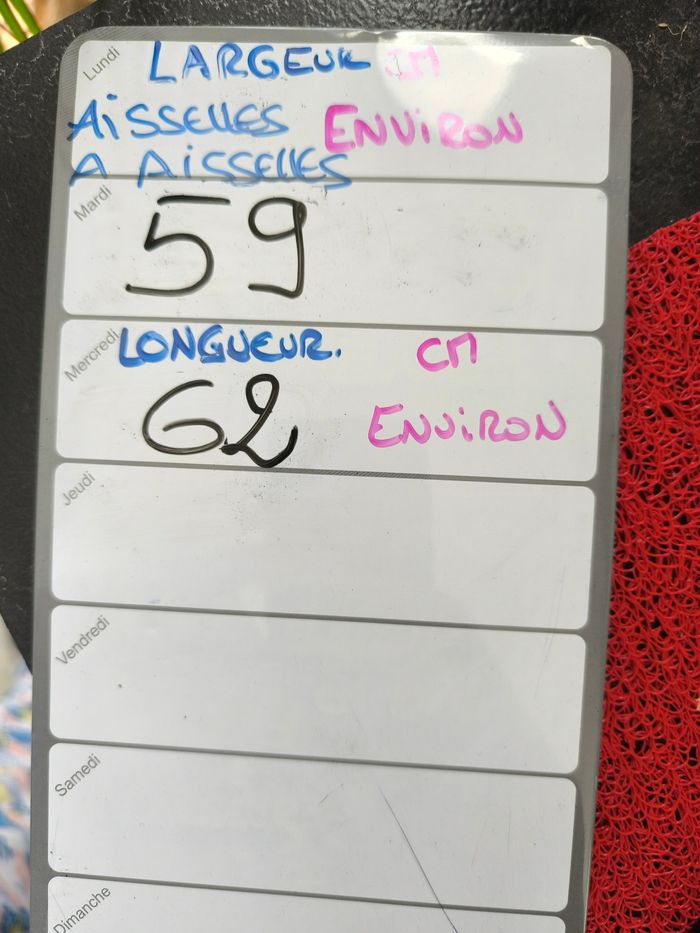 Lundi
LARGEUR CM
AISSELLES ENVIRON
A AISSELLES
Mardi
59
Mercredi
LONGUEUR. CM
62 ENVIRON
Jeudi
Vendredi
Samedi
Dimanche